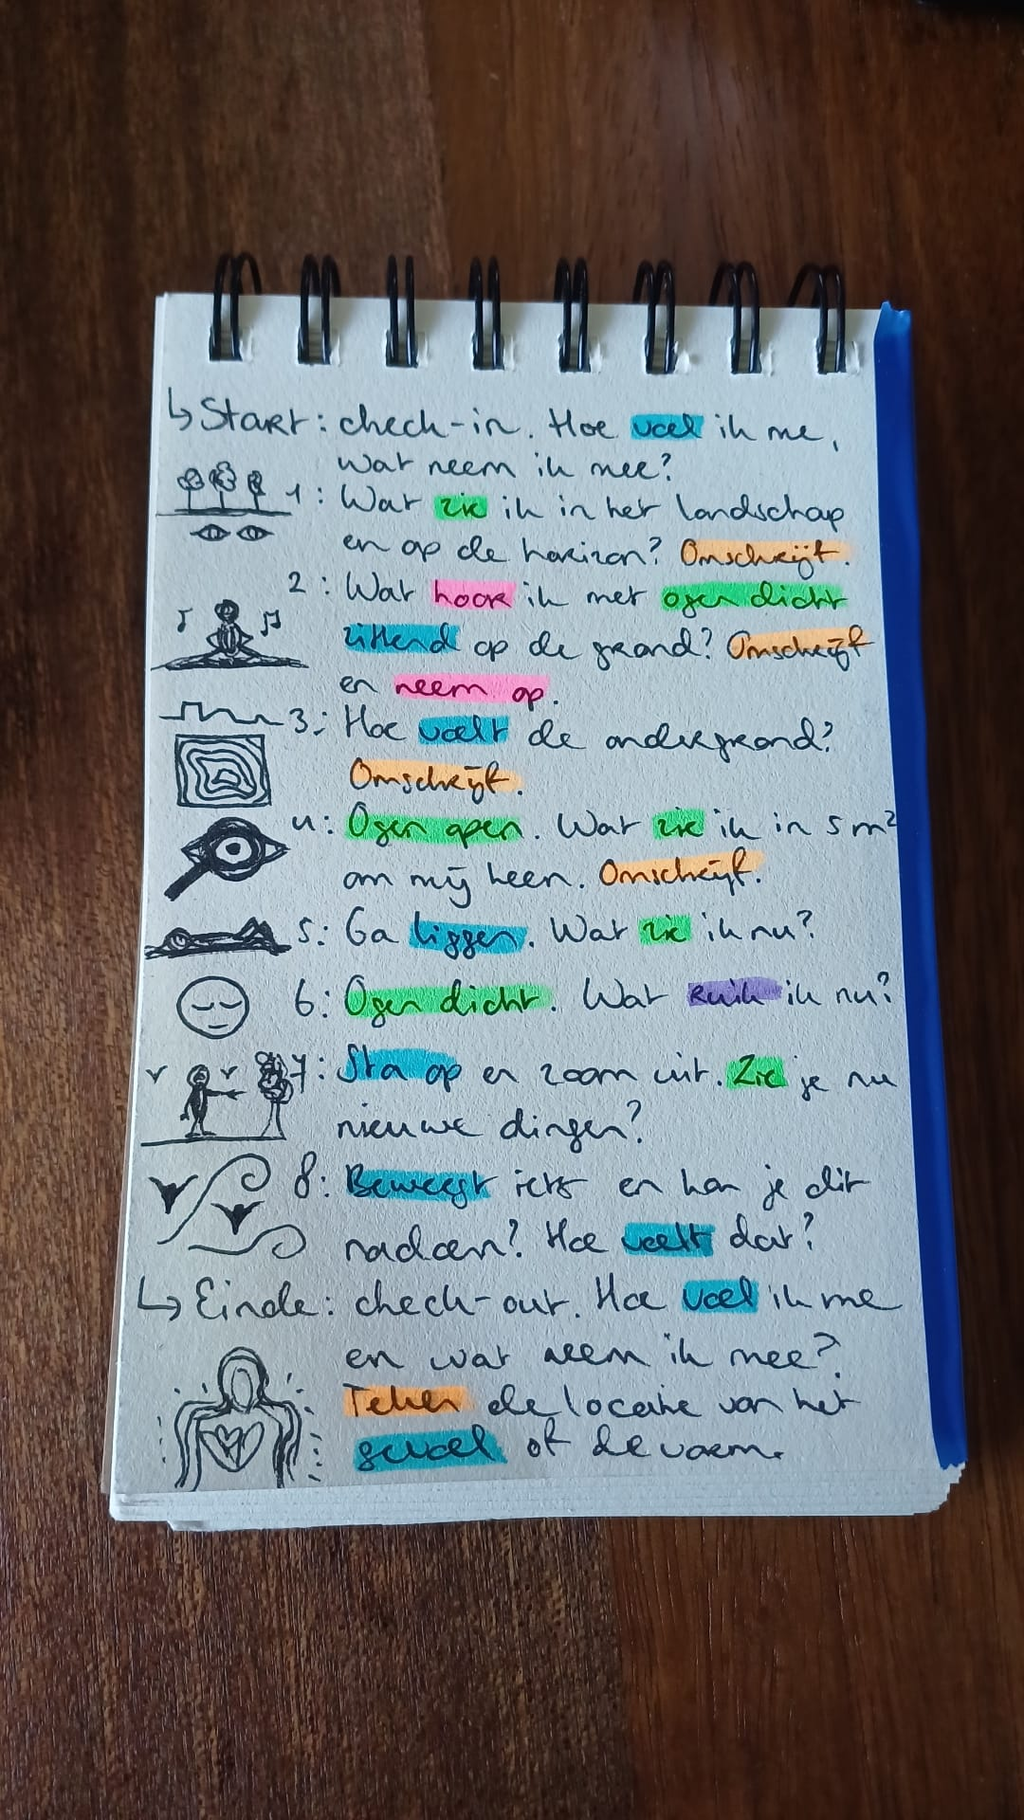 ↳ Start: check-in. Hoe voel ik me,
wat neem ik mee?
1: Wat zie ik in het landschap
en op de horizon? Omschrijf.
2: Wat hoor ik met ogen dicht
zittend op de grond? Omschrijf
en neem op.
3: Hoe voelt de ondergrond?
Omschrijf.
4: Ogen open. Wat zie ik in 5 m²
om mij heen. Omschrijf.
5: Ga liggen. Wat zie ik nu?
6: Ogen dicht. Wat ruik ik nu?
7: Sta op en zoom uit. Zie je nu
nieuwe dingen?
8: Beweegt iets en kan je dit
nadoen? Hoe voelt dat?
↳ Einde: check-out. Hoe voel ik me
en wat neem ik mee?
Teken de locatie van het
gevoel of de vorm.